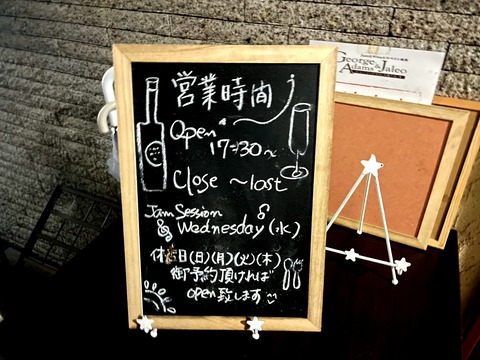 営業時間
Open
17:30~
Close ~last
Jam Session
Wednesday (水)
休日(日)(月)(火)(木)
御予約頂ければ
open致します
George & Jaleo
Adams